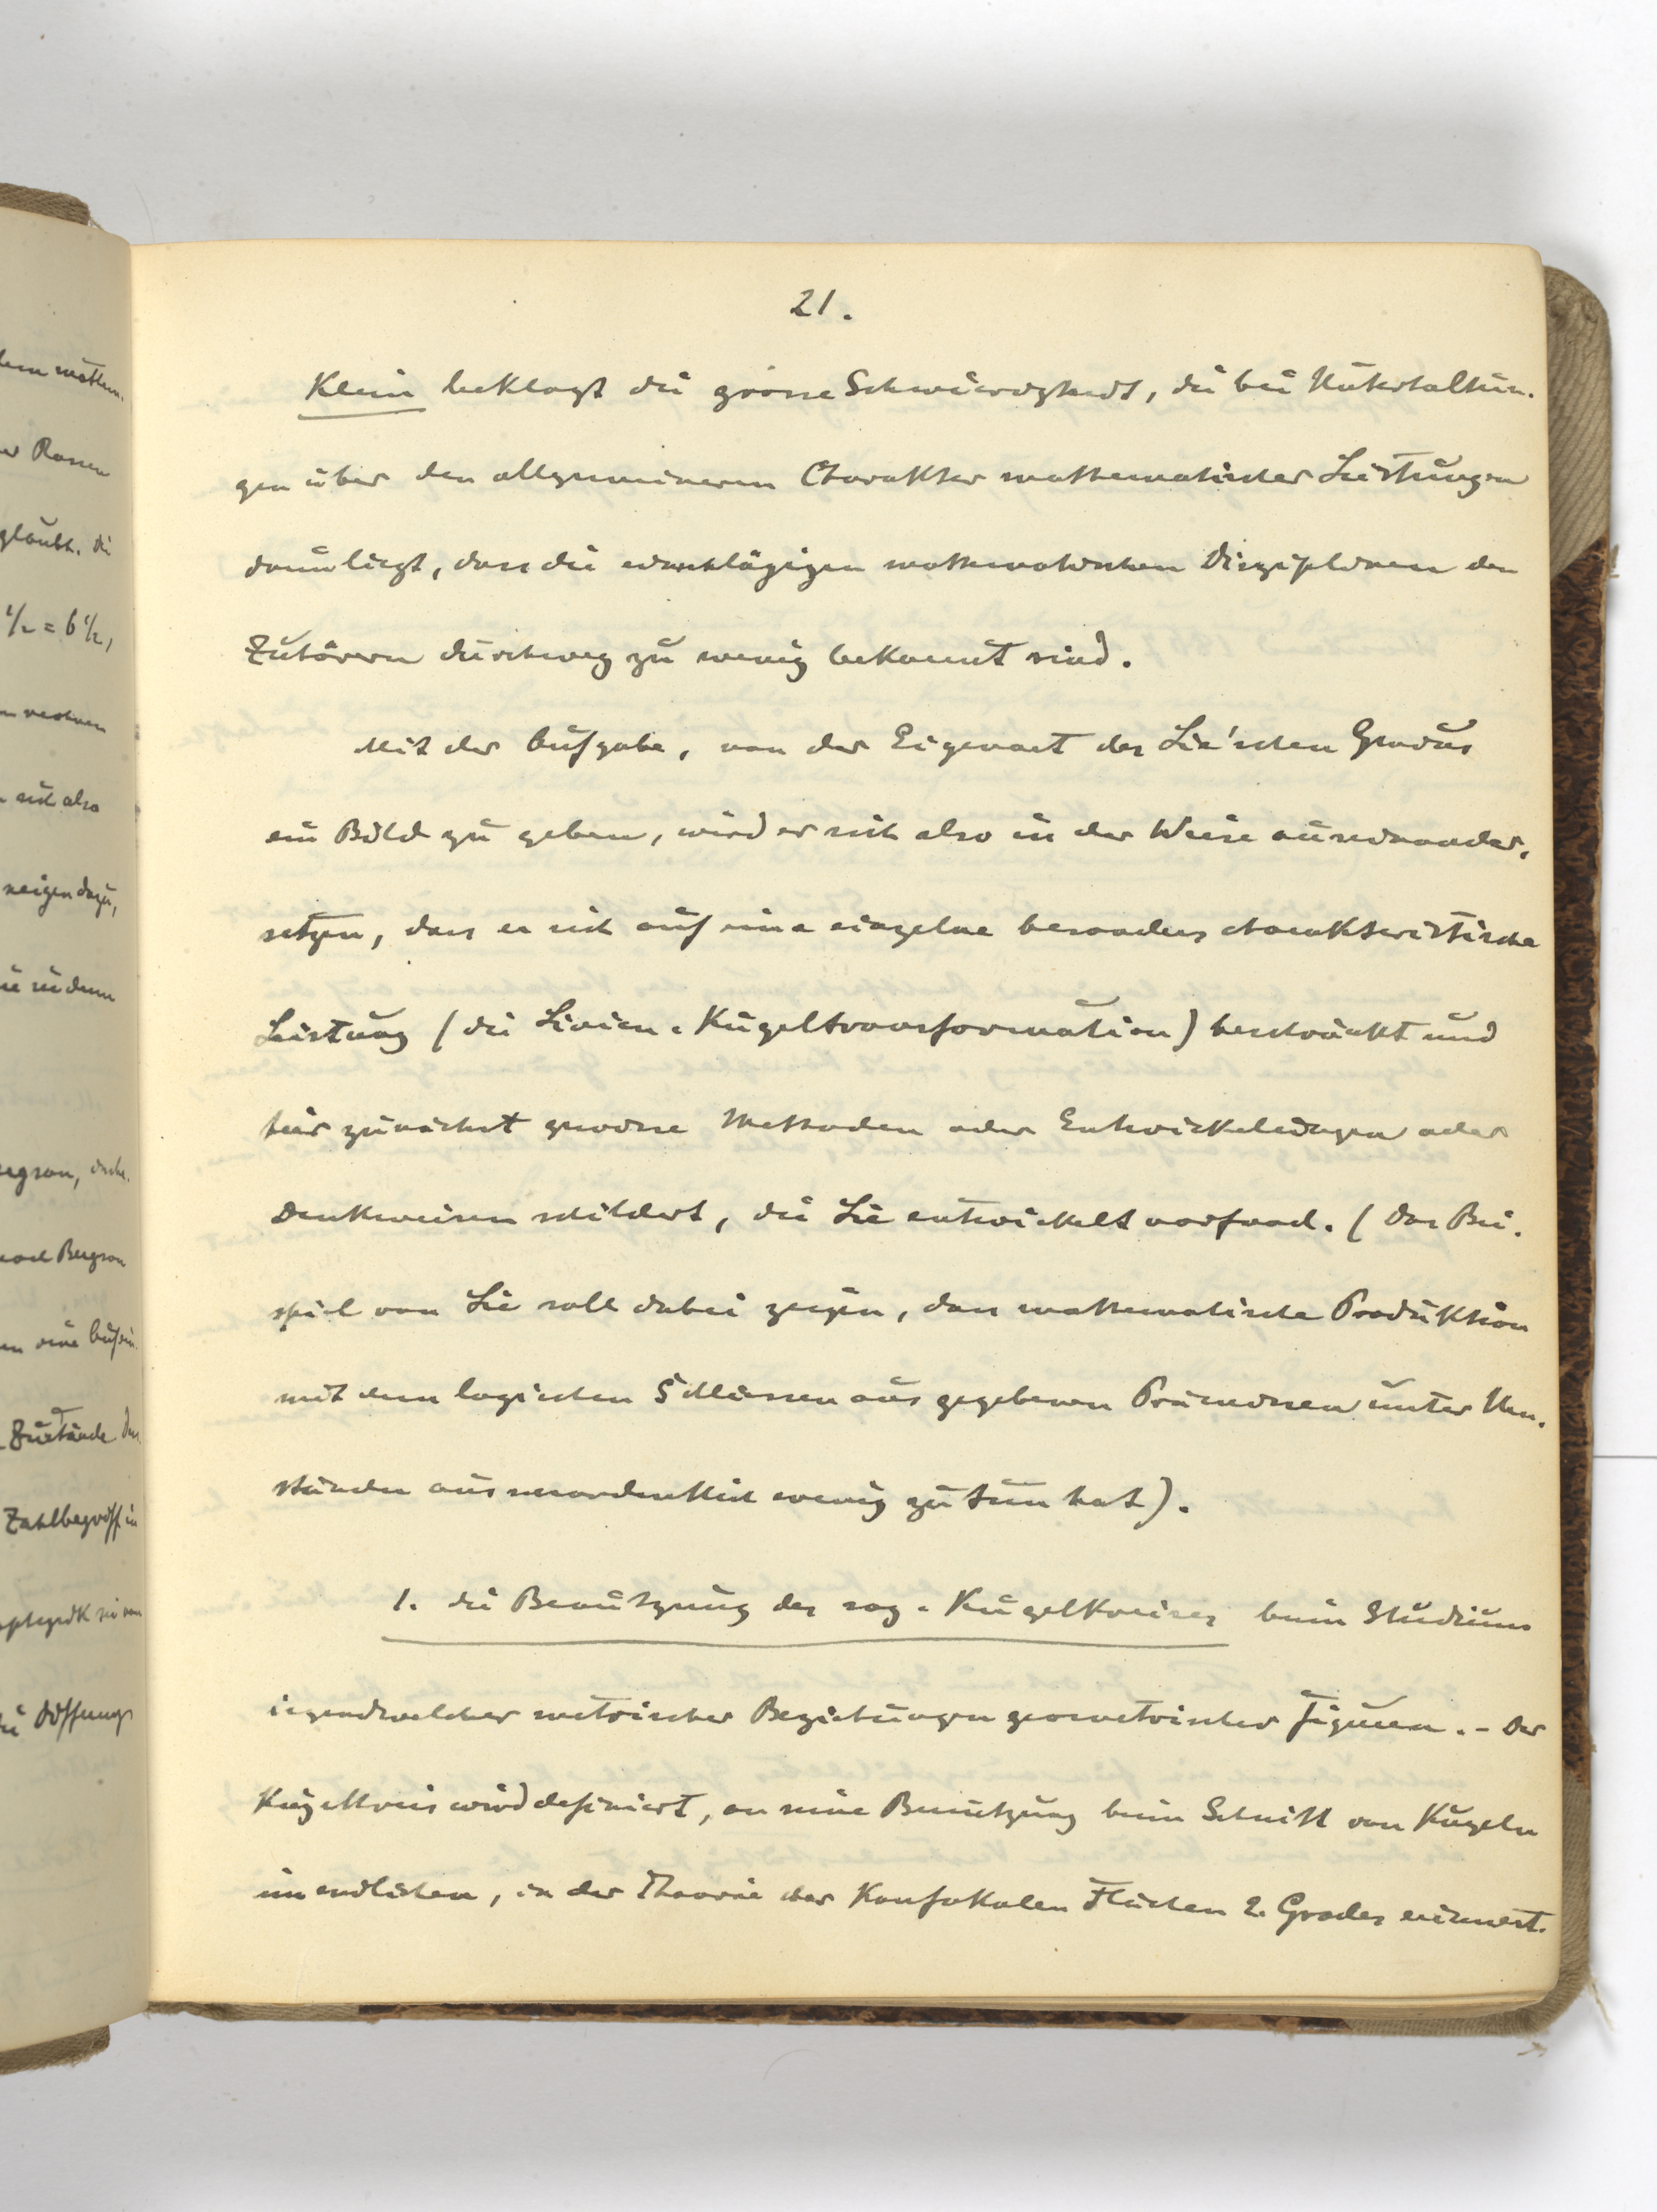 21.
Klein beklagt die grosse Schwierigkeit, die bei Unterhaltun-
gen über den allgemeineren Charakter mathematischer Leistungen
darin liegt, dass die einschlägigen mathematischen Disziplinen den
Zuhörern durchweg zu wenig bekannt sind.
Mit der Aufgabe, von der Eigenart des Lie'schen Genius
ein Bild zu geben, wird er sich also in der Weise auseinander-
setzen, dass er sich auf eine einzelne besonders charakteristische
Leistung (die Linien-Kugeltransformation) beschränkt und
hier zunächst gewisse Methoden oder Entwickelungen oder
Denkweisen schildert, die Lie entwickelt vorfand. (Das Bei-
spiel von Lie soll dabei zeigen, dass mathematische Produktion
mit dem logischen Schliessen aus gegebenen Prämissen unter Um-
ständen ausserordentlich wenig zu tun hat).
1. die Benützung des sog. Kugelkreises beim Studium
irgendwelcher metrischer Beziehungen geometrischer Figuren. - Der
Kugelkreis wird definiert, an seine Benützung beim Schnitt von Kugeln
im endlichen, in der Theorie der Konfokalen Flächen 2. Grades erinnert.
dem mathem.
Rassen
glaubt. die
1/2 = 6 1/2,
rechnen
sich also
neigen dazu,
in dem
Bergson,
nach Bergson
eine
Zustände
Zahlbegriff in
von